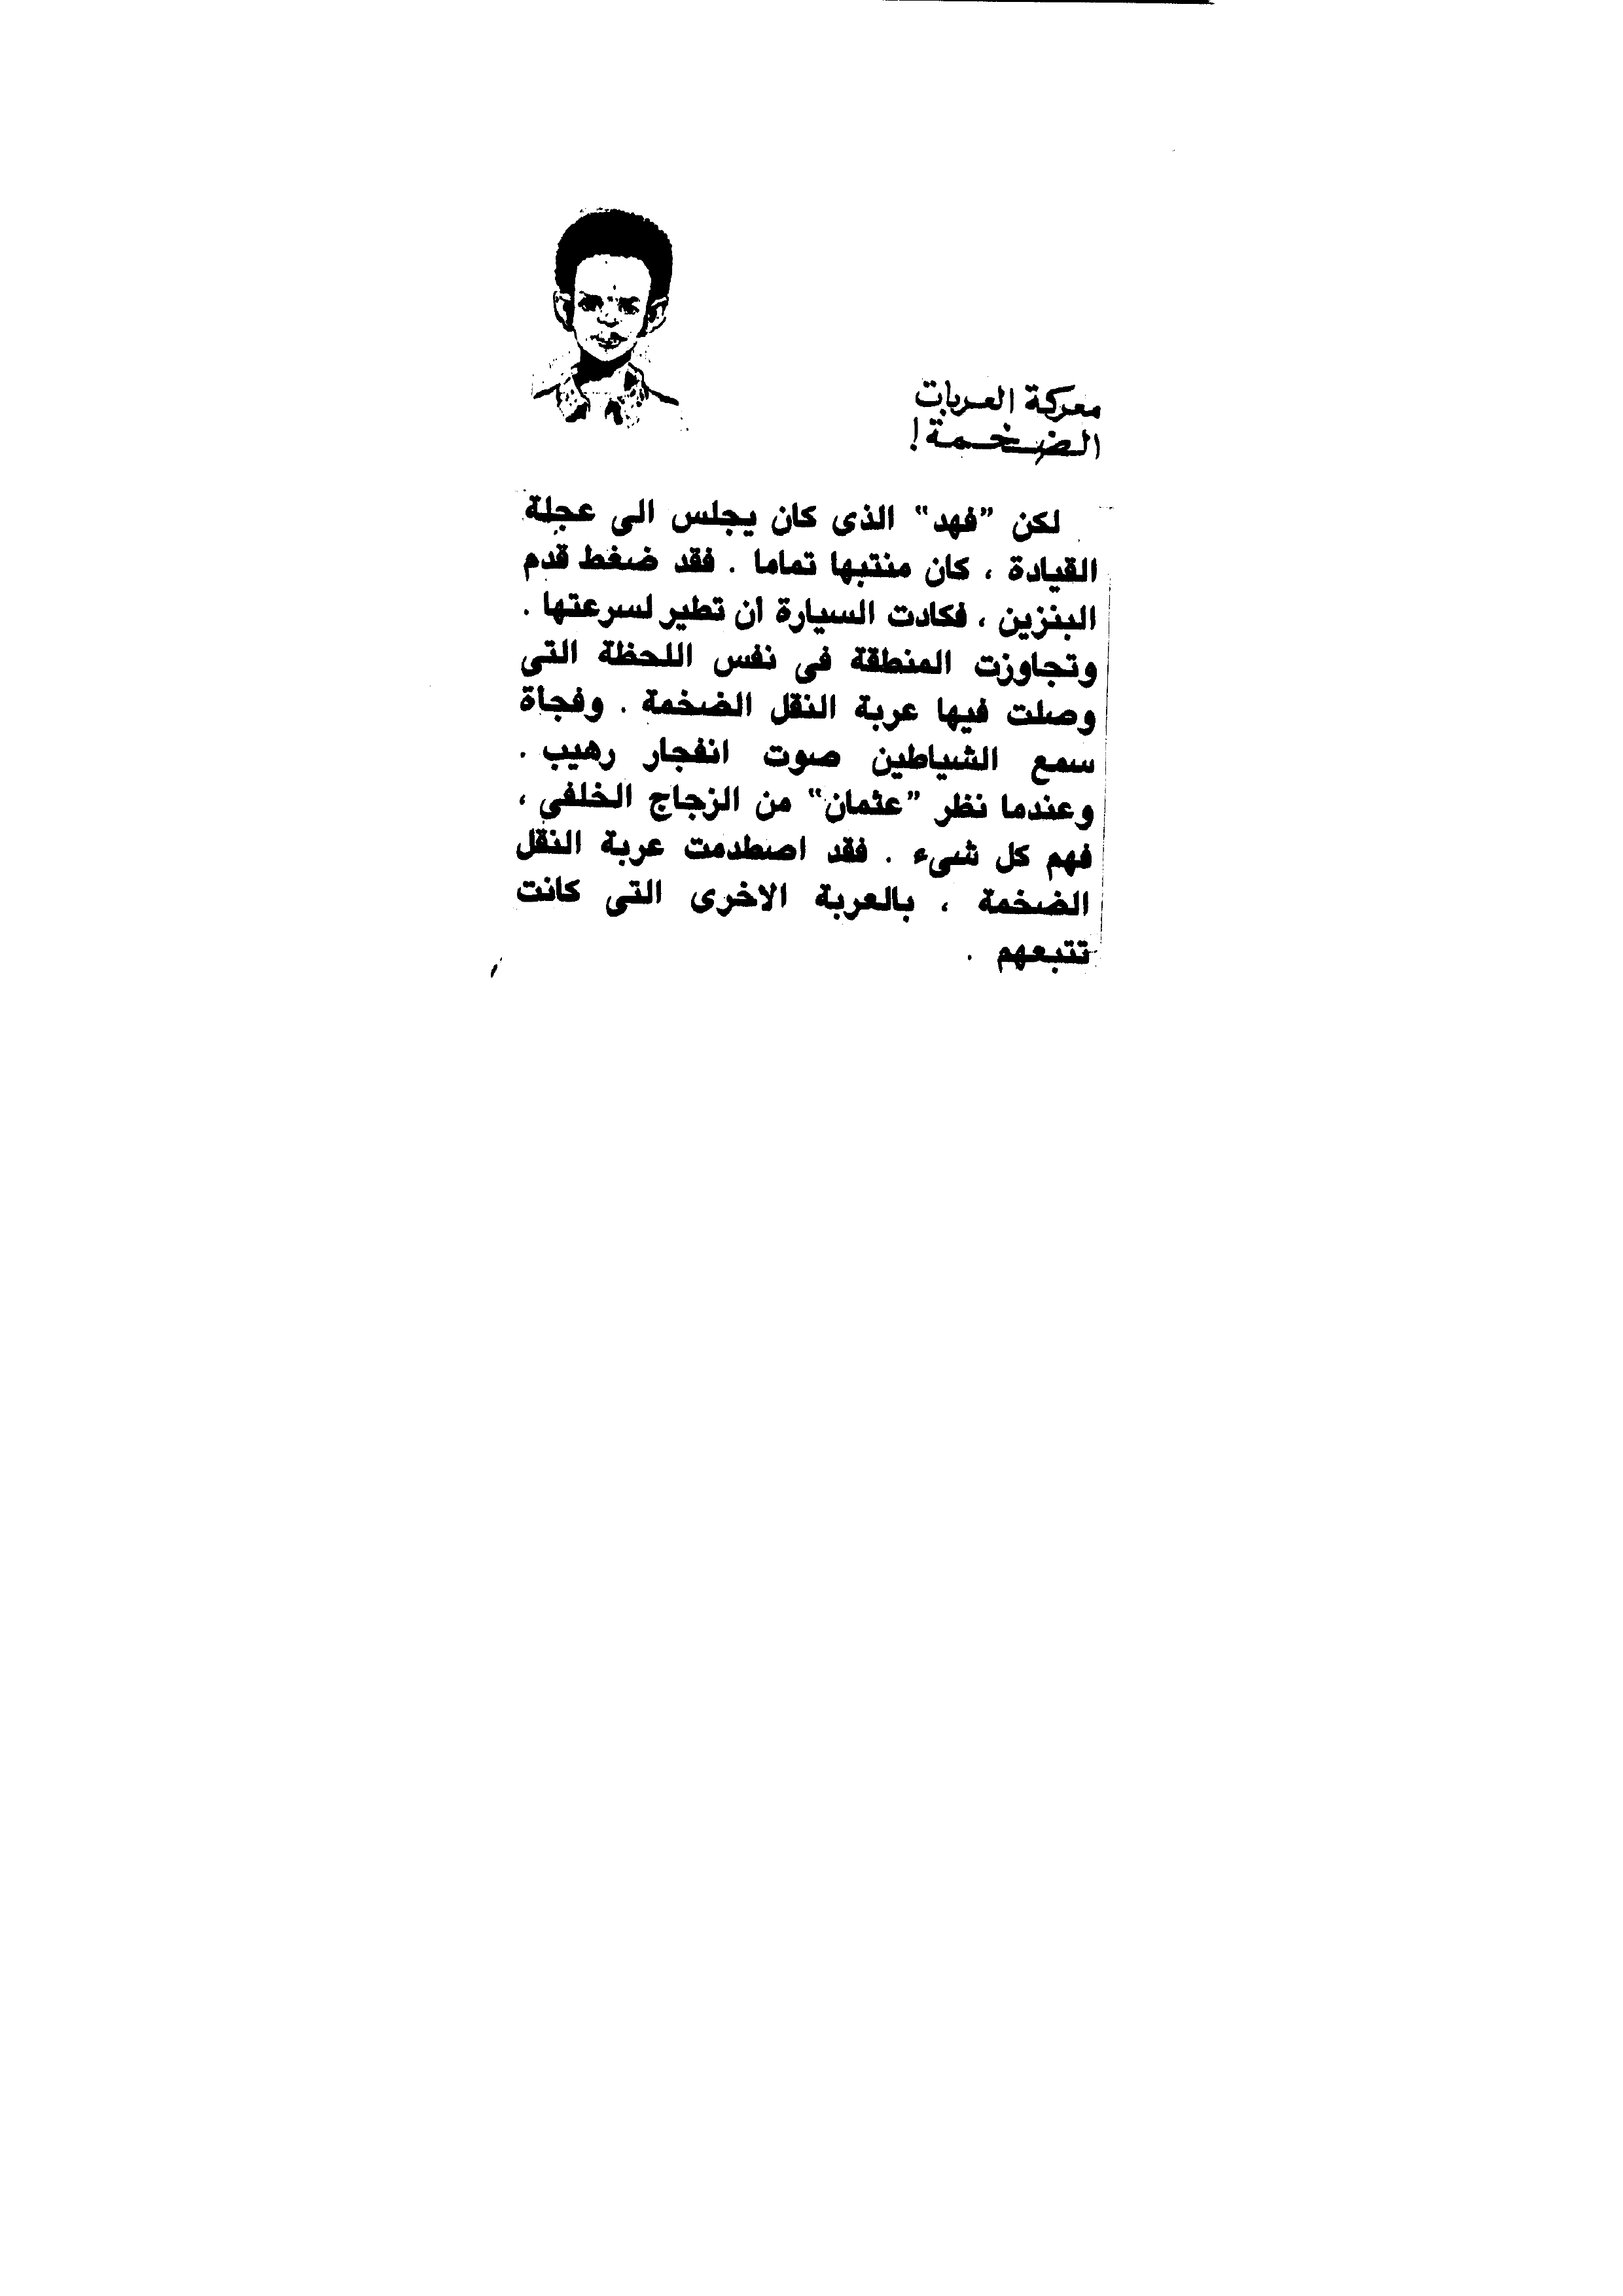 معركة العربات
الضخمة!
لكن "فهد" الذى كان يجلس الى عجلة
القيادة ، كان منتبها تماما . فقد ضغط قدم
البنزين ، فكادت السيارة ان تطير لسرعتها .
وتجاوزت المنطقة فى نفس اللحظة التى
وصلت فيها عربة النقل الضخمة . وفجأة
سمع الشياطين صوت انفجار رهيب .
وعندما نظر "عثمان" من الزجاج الخلفى ،
فهم كل شىء . فقد اصطدمت عربة النقل
الضخمة ، بالعربة الاخرى التى كانت
تتبعهم .